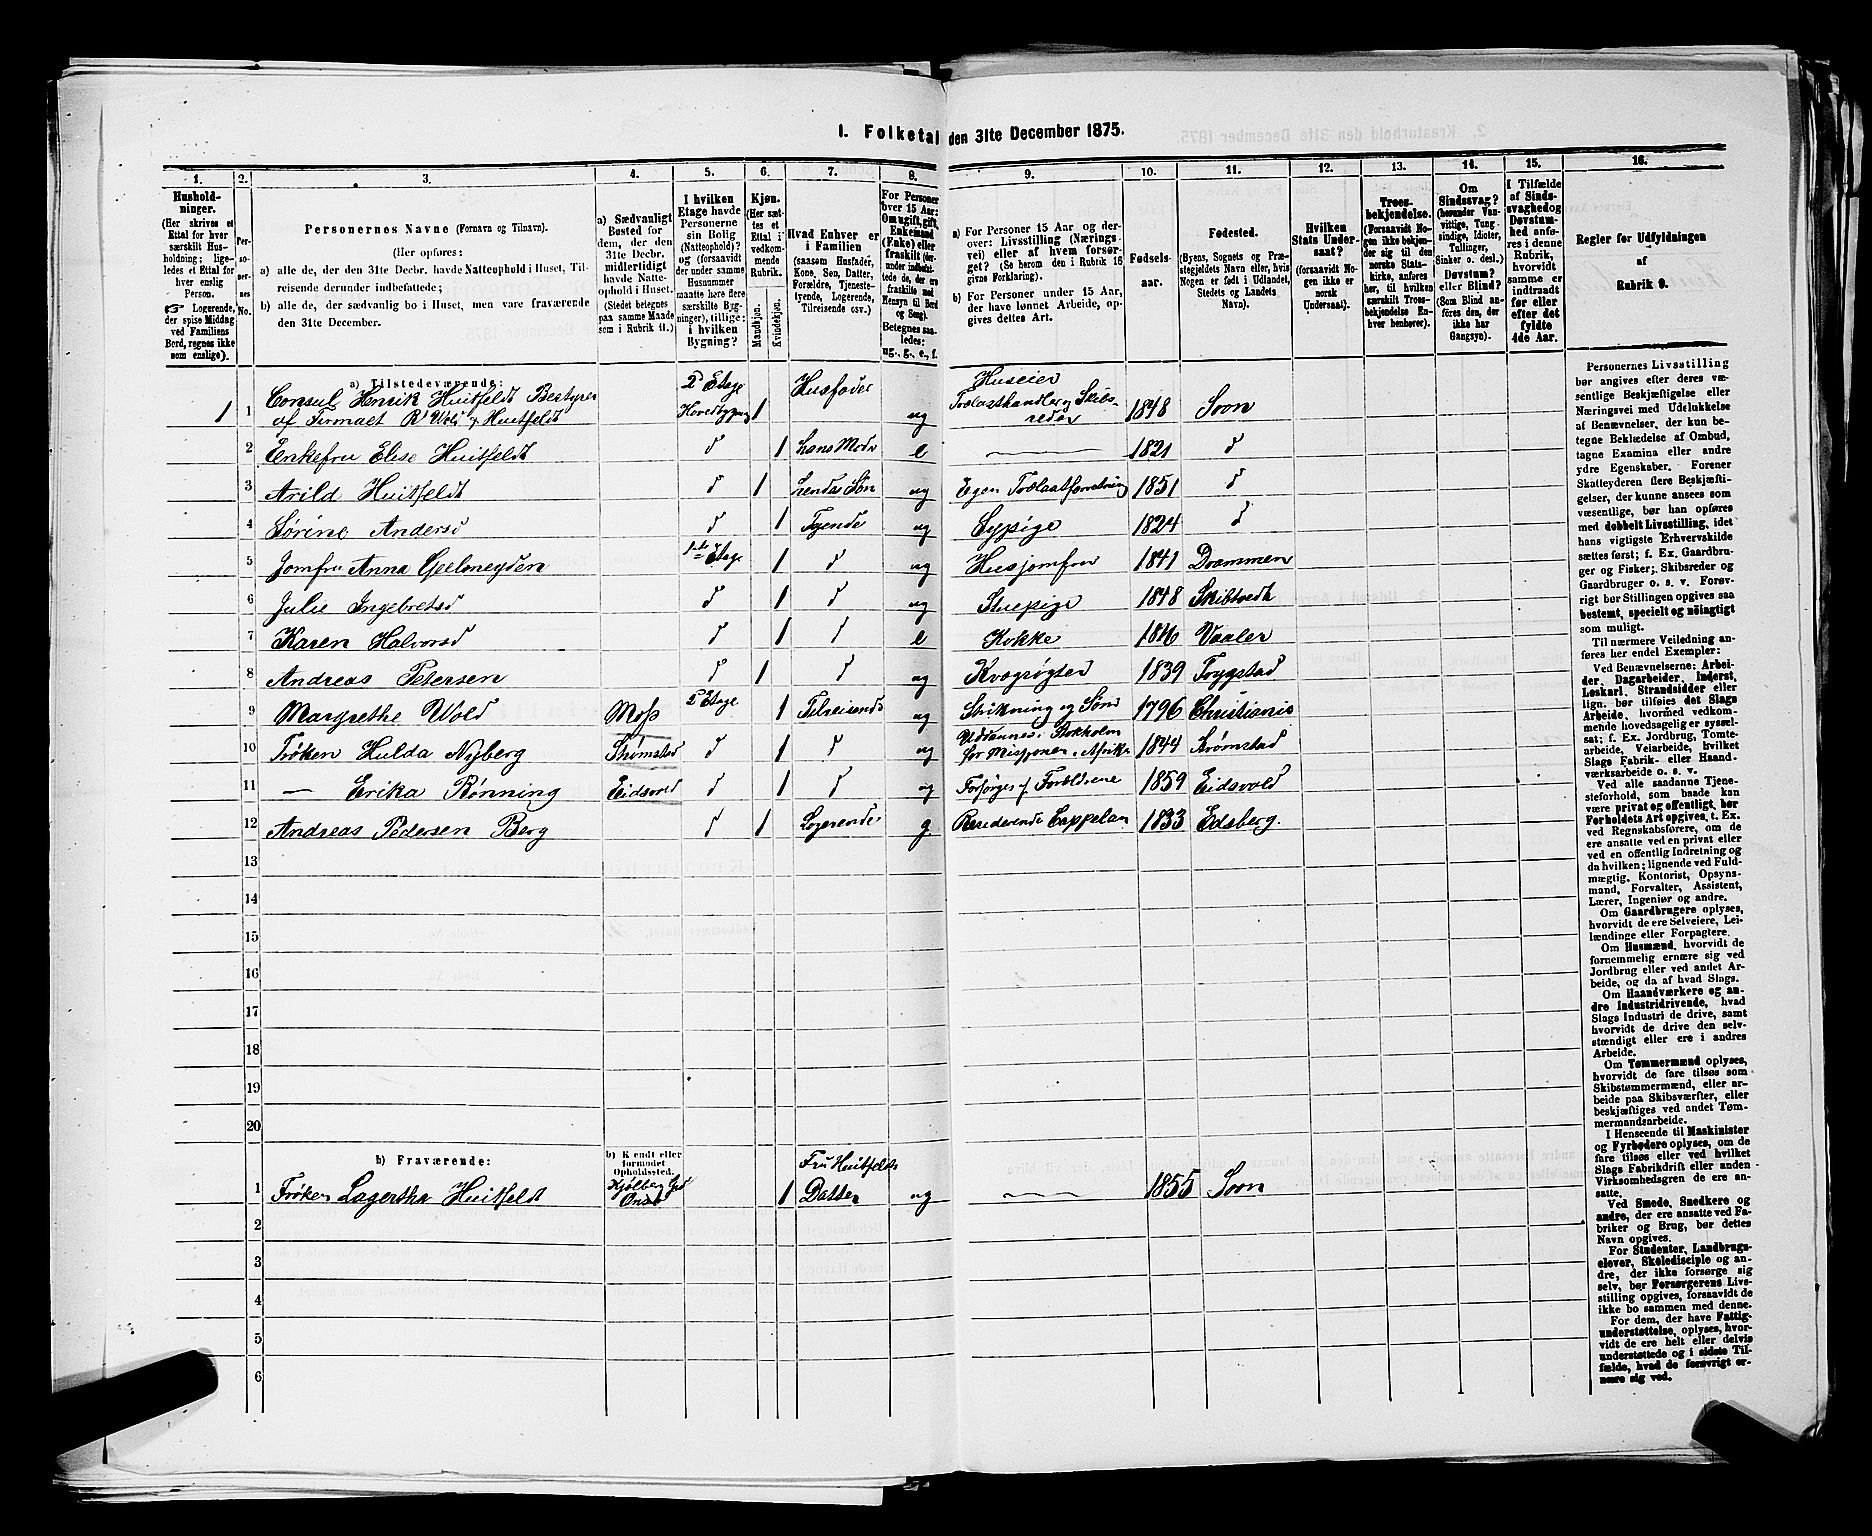 1. Folketal den 31te December 1875.
1. 2. 3. 4. 5. 6. 7. 8. 9. 10. 11. 12. 13. 14. 15. 16.
Husholdninger.
(Her skrives et
Ettal for hver
særskilt Husholdning;
ligeledes et Ettal for
hver enslig
Person.
Logerende,
der spise Middag
ved Familiens
Bord, regnes ikke
som enslige).
Personernes No.
Personernes Navne (Fornavn og Tilnavn).
(Her opføres:
a) alle de, der den 31te Decbr. havde Natteophold i Huset, Tilreisende
derunder indbefattede;
b) alle de, der sædvanlig bo i Huset, men vare fraværende
den 31te December.
a) Sædvanligt
Bosted for
dem, der den
31te Decbr.
midlertidigt
havde Natteophold
i Huset.
(Stedet betegnes
paa samme Maade
som i Rubrik 11.)
I hvilken
Etage havde
Personerne
sin Bolig
(Natteophold)?
og (forsaavidt
der under samme
Husnummer
maatte høre flere
særskilte Bygninger),
tillige:
i hvilken
Bygning?
Kjøn.
(Her sættes
et
Ettal i
vedkommende
Rubrik.
Mandkjøn.
Kvindekjøn.
Hvad Enhver er
i Familien
(saasom Husfader,
Kone, Søn, Datter,
Forældre, Tjenestetyende,
Logerende,
Tilreisende osv.)
For Personer
over 15 Aar:
Om ugift, gift,
Enkemand
(Enke) eller
fraskilt
Betegnes saaledes:
ug., g., e., f.
a) For Personer 15 Aar og derover:
Livsstilling (Næringsvei)
eller af hvem forsørget?
(Se herom den i Rubrik 16
givne Forklaring).
b) For Personer under 15 Aar,
der have lønnet Arbeide, opgives
dettes Art.
Fødselsaar.
Fødested.
(Byens, Sognets og Præstegjeldets
Navn eller, hvis
Nogen er født i Udlandet,
Stedets og Landets
Navn).
Hvilken
Stats Undersaat?
(forsaavidt Nogen
ikke er
norsk
Undersaat).
Troesbekjendelse.
(Forsaavidt Nogen
ikke bekjender
sig til den
norske Statskirke,
anføres
her, til hvilken
særskilt Troesbekjendelse
Enhver
henhører).
Om
Sindssvag?
(herunder Vanvittige,
Tungsindige,
Idioter,
Tullinger,
Sinker o. desl.)
Døvstum?
eller Blind?
(Som Blind anføres
den, der
ikke har
Gangsyn).
I Tilfælde
af Sindssvaghed
og
Døvstumhed
anføres
i denne
Rubrik,
hvorvidt
samme er
indtraadt
før eller
efter det
fyldte
4de Aar.
Regler for Udfyldningen
af
Rubrik 9.
a) Tilstedeværende:
1 1 Consul Henrik Huitfeldt Bestyrer
af Firmaet R Wold & Huitfeldt 2 Etage Hovedbygning 1 Husfader ug Huseier Trælasthandler og Skibsreder 1848 Soon
2 Enkefru Elise Huitfeldt d 1 hans Moder e — 1821 d
3 Arild Huitfeldt d 1 hendes Søn ug Egen Trælastforretning 1851 d
4 Sørine Andersd d 1 Tyende ug Sypige 1824 d
5 Jomfru Anna Geelmeyden 1ste Etage 1 d ug Husjomfru 1841 Drammen
6 Julie Ingebretsd d 1 d ug Stuepige 1848 Skibtvedt
7 Karen Halvorsd d 1 d e Kokke Vaaler
8 Andreas Petersen d 1 d ug Kvægrøgter 1839 Trygstad
9 Margrethe Wold Moss 2 Etage 1 Tilreisende ug Strikning og Sønd 1796 Christiania
10 Frøken Hulda Nyberg Strømstad d 1 d ug Uddannes i Stokholm
for Missjonen i Afrika 1844 Strømstad
11 — Erika Rønning Eidsvold d 1 d ug Forsørges af Forældrene 1859 Eidsvold
12 Andreas Pedersen Berg d 1 Logerende g Residerende Cappelan 1833 Edsberg.
13
14
15
16
17
18
19
20
b) Fraværende:
b) Kjendt eller
formodet
Opholdssted.
1 Frøken Lagertha Huitfeldt Kjølberg Gd Onsø 1 Fru Huitfeldts Datter ug — 1855 Soon
2
3
4
5
6
Personernes Livsstilling
bør angives efter deres væsentlige
Beskjæftigelse eller
Næringsvei med Udelukkelse
af Benævnelser, der kun betegne
Beklædelse af Ombud,
tagne Examina eller andre
ydre Egenskaber. Forener
Skatteyderen flere Beskjæftigelser,
der kunne ansees som
væsentlige, bør han opføres
med dobbelt Livsstilling, idet
hans vigtigste Erhvervskilde
sættes først; f. Ex. Gaardbruger
og Fisker; Skibsreder og
Gaardbruger o. s. v. Forøvrigt
bør Stillingen opgives saa
bestemt, specielt og nøiagtigt
som muligt.
Til nærmere Veiledning anføres
her endel Exempler:
Ved Benævnelserne: Arbeider,
Dagarbeider, Inderst,
Løskarl, Strandsidder eller
lign. bør tilføies det Slags
Arbeide, hvormed vedkommende
hovedsagelig er sysselsat;
f. Ex. Jordbrug, Tomtearbeide,
Veiarbeide, hvilket
Slags Fabrik- eller Haandværksarbeide
o. s. v.
Ved alle saadanne Tjenesteforhold,
som baade kan
være privat og offentligt, bør
Forholdets Art opgives, t. Ex.
ved Regnskabsførere, om de
ere ansatte ved en privat eller
ved en offentlig Indretning og
da hvilken; lignende ved Fuldmægtig,
Kontorist, Opsynsmand,
Forvalter, Assistent,
Lærer, Ingeniør og andre.
Om Gaardbrugere oplyses,
hvorvidt de ere Selveiere, Leilændinge
eller Forpagtere.
Om Husmænd, hvorvidt de
fornemmelig ernære sig ved
Jordbrug eller ved andet Arbeide,
og da af hvad Slags.
Om Haandværkere og andre
Industridrivende, hvad
Slags Industri de drive, samt
hvorvidt de drive den selvstændigt
eller ere i andres
Arbeide.
Om Tømmermænd oplyses,
hvorvidt de fare tilsøs som
Skibstømmermænd, eller arbeide
paa Skibsværfter, eller
beskjæftiges ved andet Tømmermandsarbeide.
I Henseende til Maskinister
og Fyrbødere oplyses, om de
fare tilsøs eller ved hvilket
Slags Fabrikdrift eller anden
Virksomhedsgren de ere ansatte.
Ved Smede, Snedkere og
andre, der ere ansatte ved Fabriker
og Brug, bør dettes
Navn opgives.
For Studenter, Landbrugselever,
Skoledisciple og andre,
der ikke forsørge sig
selv, bør Forsørgerens Livsstilling
opgives, forsaavidt de
ikke bo sammen med denne.
For dem, der have Fattigunderstøttelse,
oplyses, hvorvidt
de ere helt eller delvis
understøttede og i sidste Tilfælde,
hvad de forøvrigt ernære
sig ved.